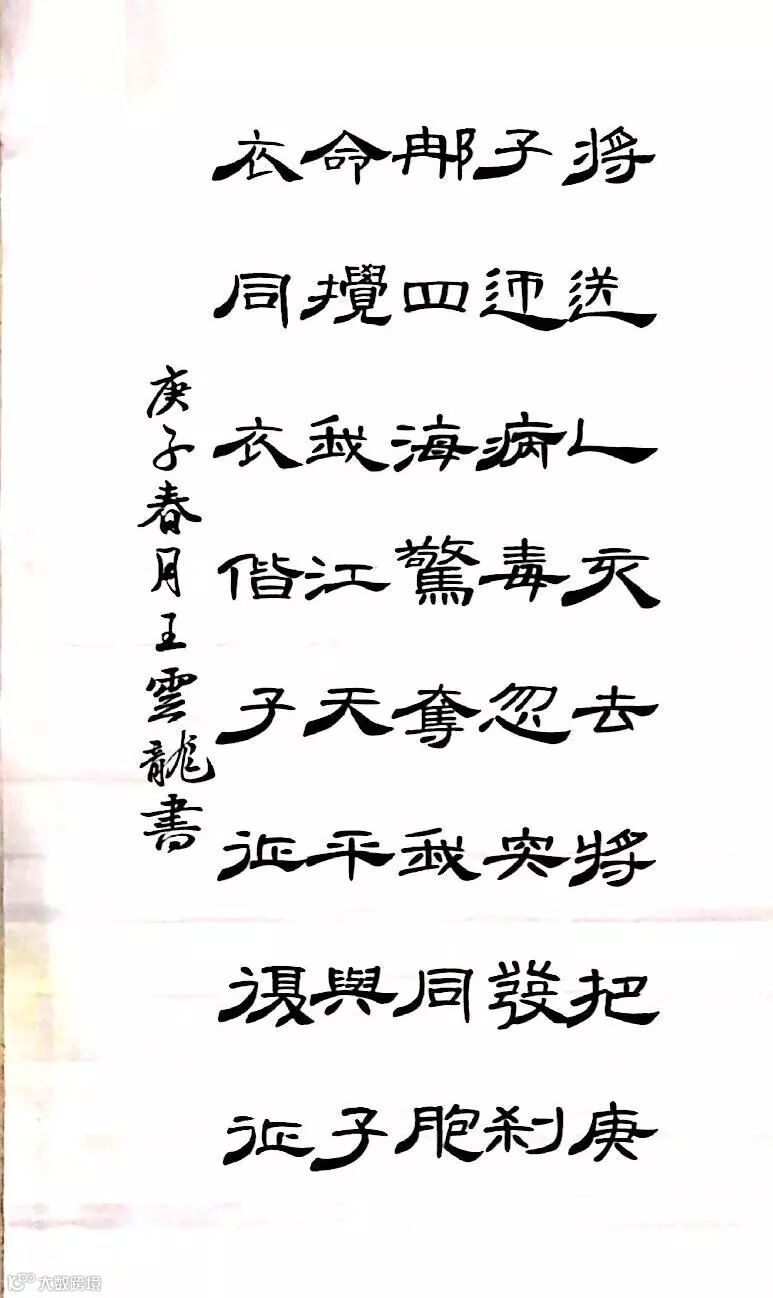 将送人亥去将把庚
子迎病毒忽突發刹
那四海驚奪我同胞
命攪我江天平與子
衣同衣偕子征復征
庚子春月王雲龍書
大数跨境